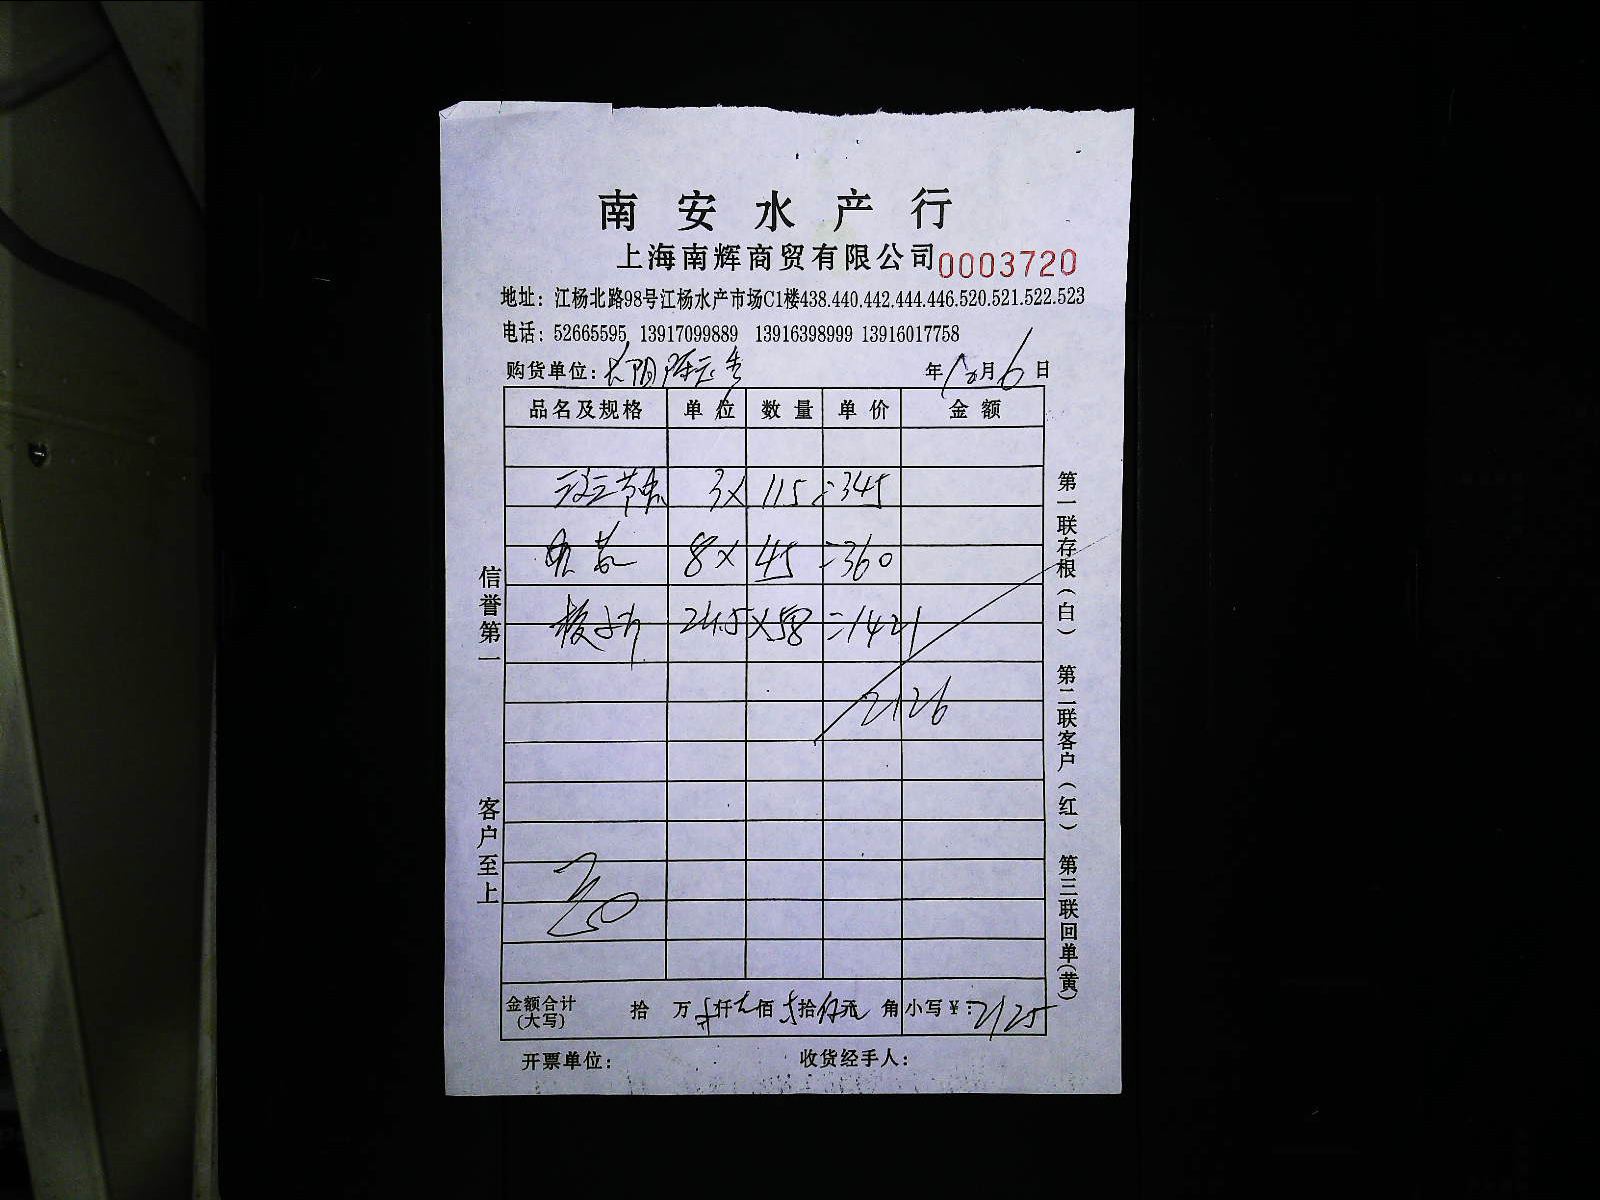 南安水产行
上海南辉商贸有限公司 0003720
地址：江杨北路98号江杨水产市场C1楼438.440.442.444.446.520.521.522.523
电话：52665595 13917099889 13916398999 13916017758
购货单位： 年 月6日
品名及规格 单位 数量 单价 金额
3× 115=345
8× 45=360
板 24.5×58=1421
2126
金额合计(大写) 拾 万 仟 佰 拾 元 角 小写￥：2125
开票单位： 收货经手人：
信誉第一
客户至上
第一联存根(白) 第二联客户(红) 第三联回单(黄)